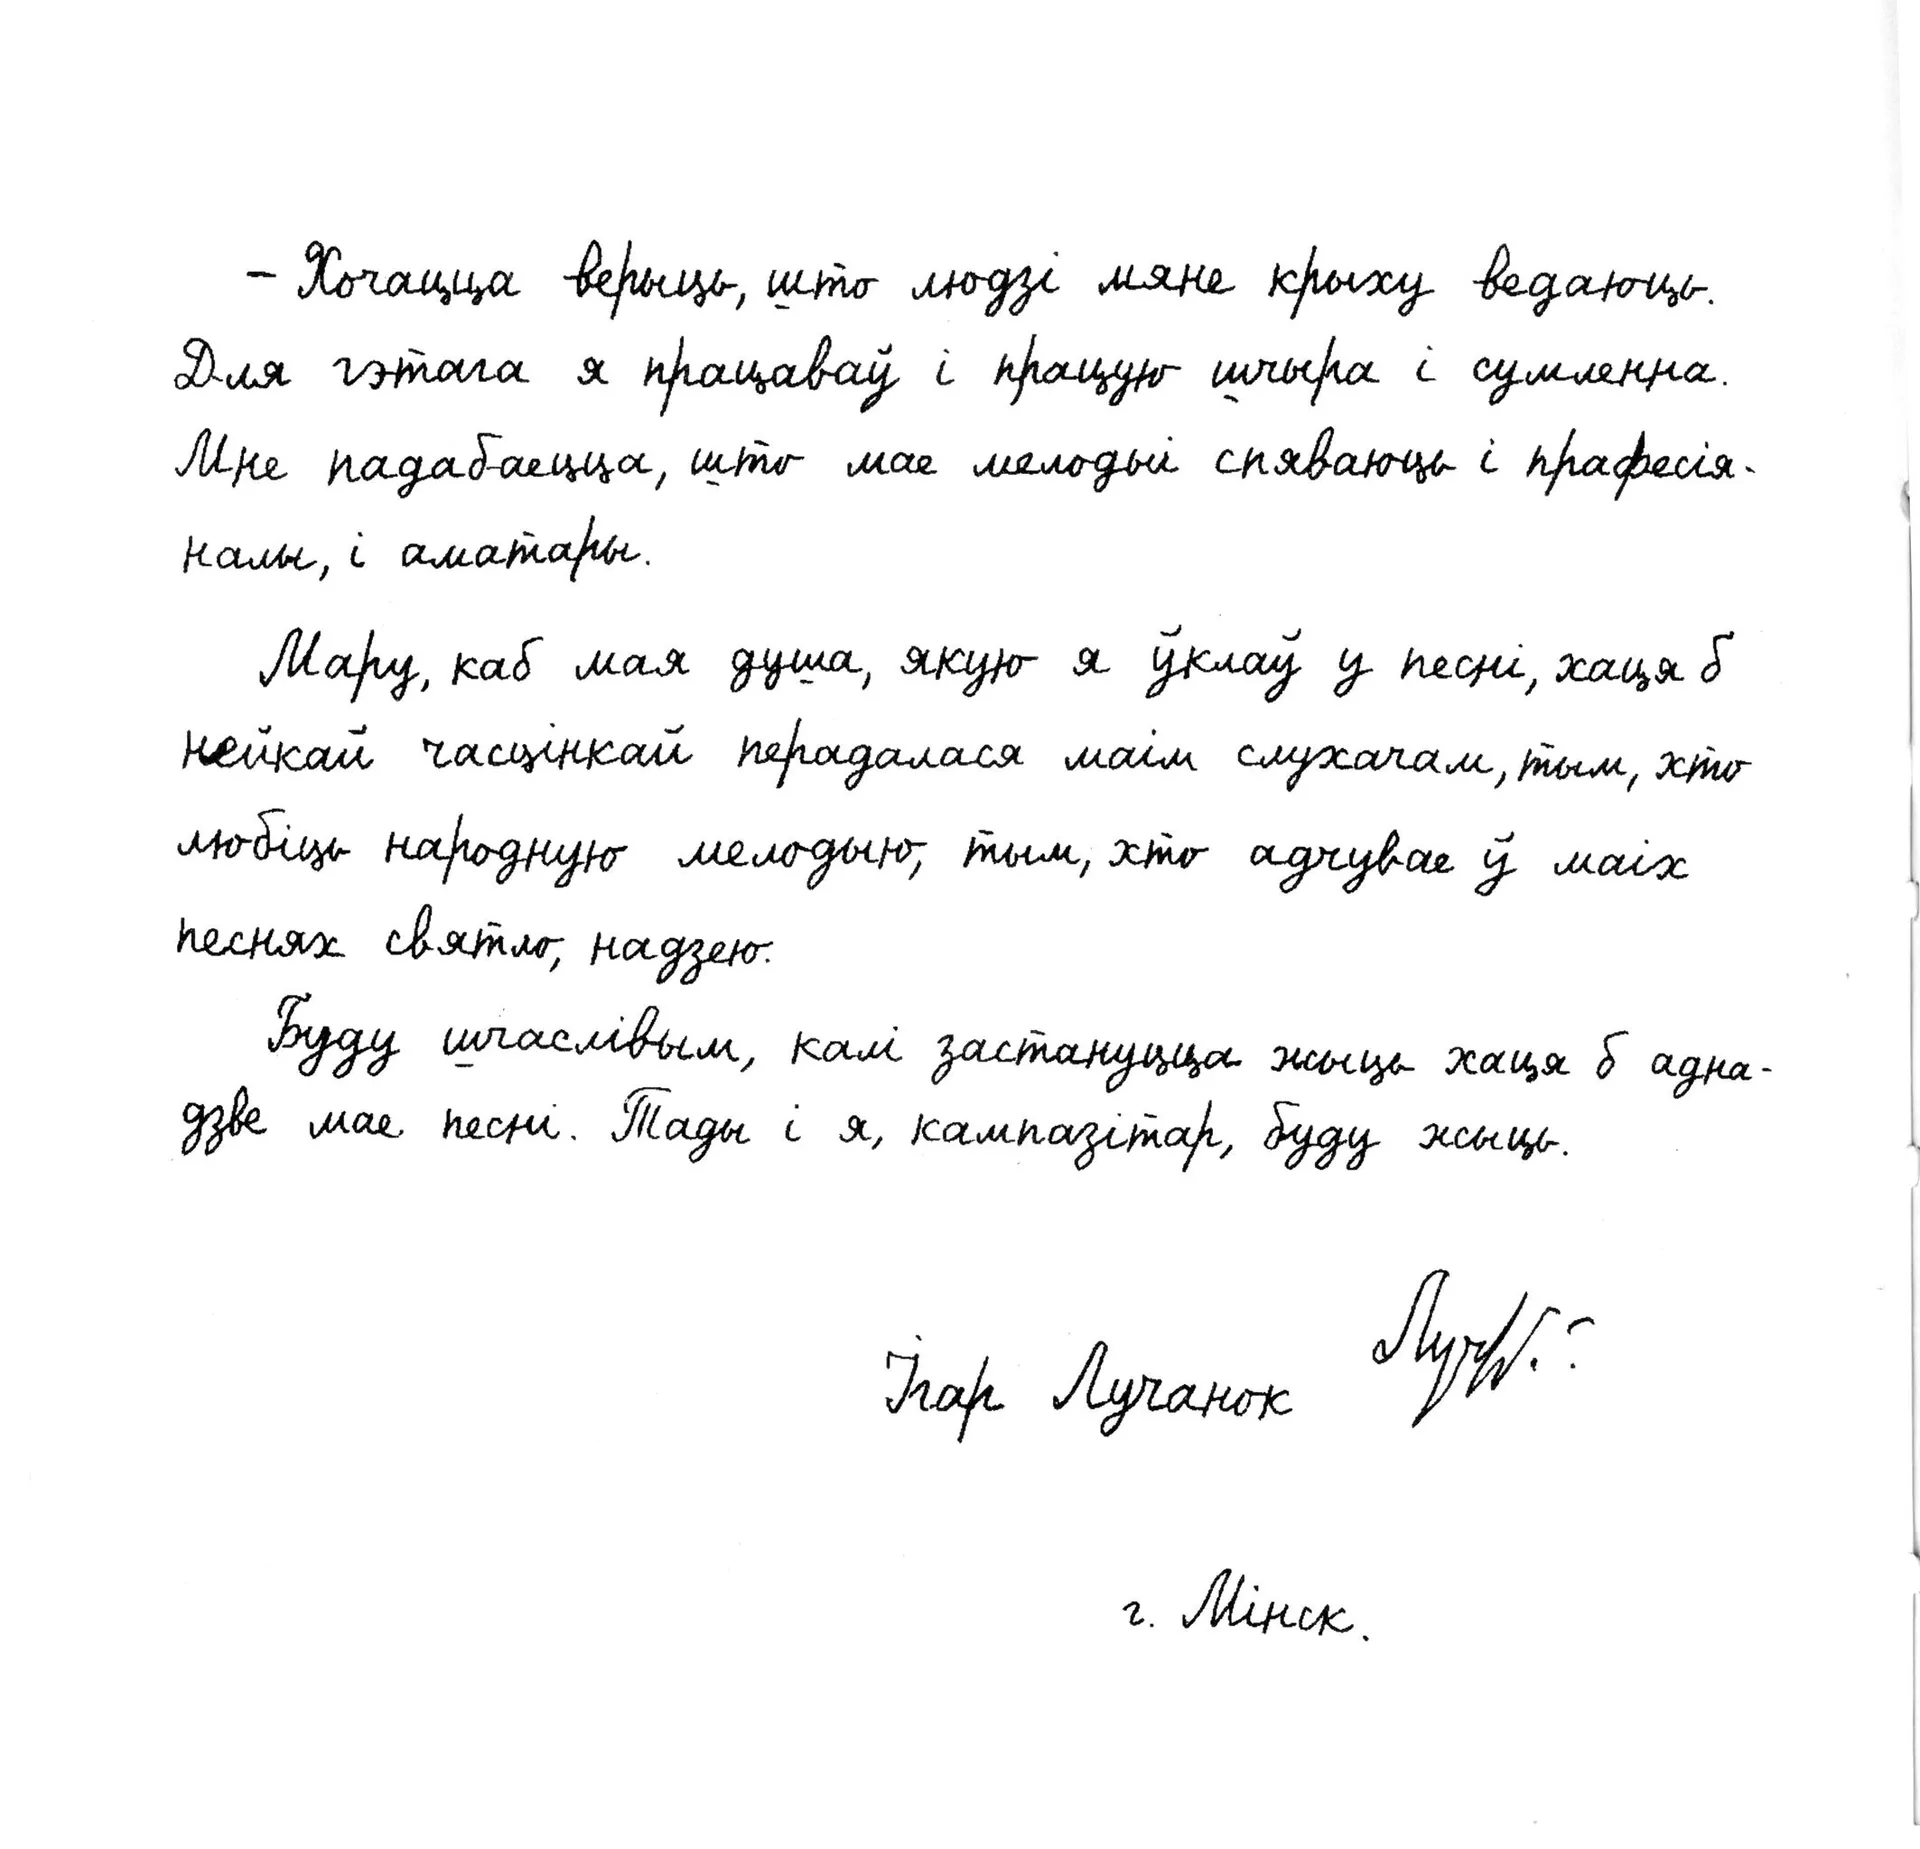 – Хочацца верыць, што людзі мяне крыху ведаюць.
Для гэтага я працаваў і працую шчыра і сумленна.
Мне падабаецца, што мае мелодыі спяваюць і прафесія-
налы, і аматары.
Мару, каб мая душа, якую я ўклаў у песні, хаця б
нейкай часцінкай перадалася маім слухачам, тым, хто
любіць народную мелодыю, тым, хто адчувае ў маіх
песнях святло, надзею.
Буду шчаслівым, калі застануцца жыць хаця б адна-
дзве мае песні. Тады і я, кампазітар, буду жыць.
Ігар Лучанок
г. Мінск.